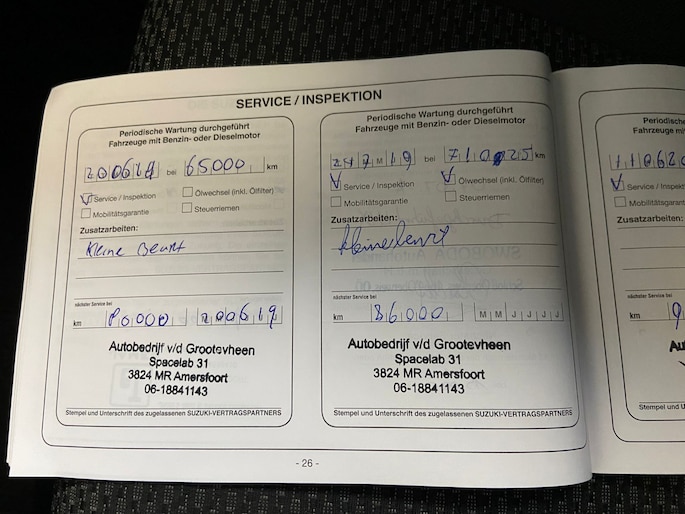 SERVICE / INSPEKTION
Periodische Wartung durchgeführt
Fahrzeuge mit Benzin- oder Dieselmotor
200619 bei 65000 km
Service / Inspektion
Ölwechsel (inkl. Ölfilter)
Mobilitätsgarantie
Steuerriemen
Zusatzarbeiten:
Kleine Beurt
nächster Service bei
km 80000 200619
Autobedrijf v/d Grootevheen
Spacelab 31
3824 MR Amersfoort
06-18841143
Stempel und Unterschrift des zugelassenen SUZUKI-VERTRAGSPARTNERS
Periodische Wartung durchgeführt
Fahrzeuge mit Benzin- oder Dieselmotor
bei km
Service / Inspektion
Ölwechsel (inkl. Ölfilter)
Mobilitätsgarantie
Steuerriemen
Zusatzarbeiten:
kleine beurt
nächster Service bei
km 86000 M M J J J J
Autobedrijf v/d Grootevheen
Spacelab 31
3824 MR Amersfoort
06-18841143
Stempel und Unterschrift des zugelassenen SUZUKI-VERTRAGSPARTNERS
- 26 -
Service / Inspektion
Zusatzarbeiten:
nächster Service bei
km